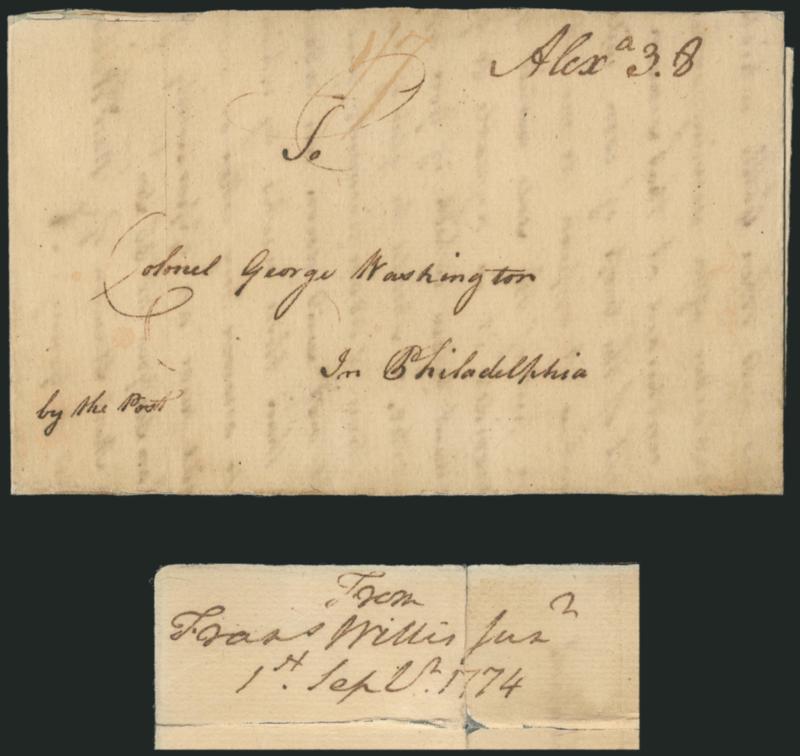 47
Alexᵃ 3.8
To
Colonel George Washington
In Philadelphia
by the Post
From
Frans Willis Junʳ
1st. Sepbr. 1774